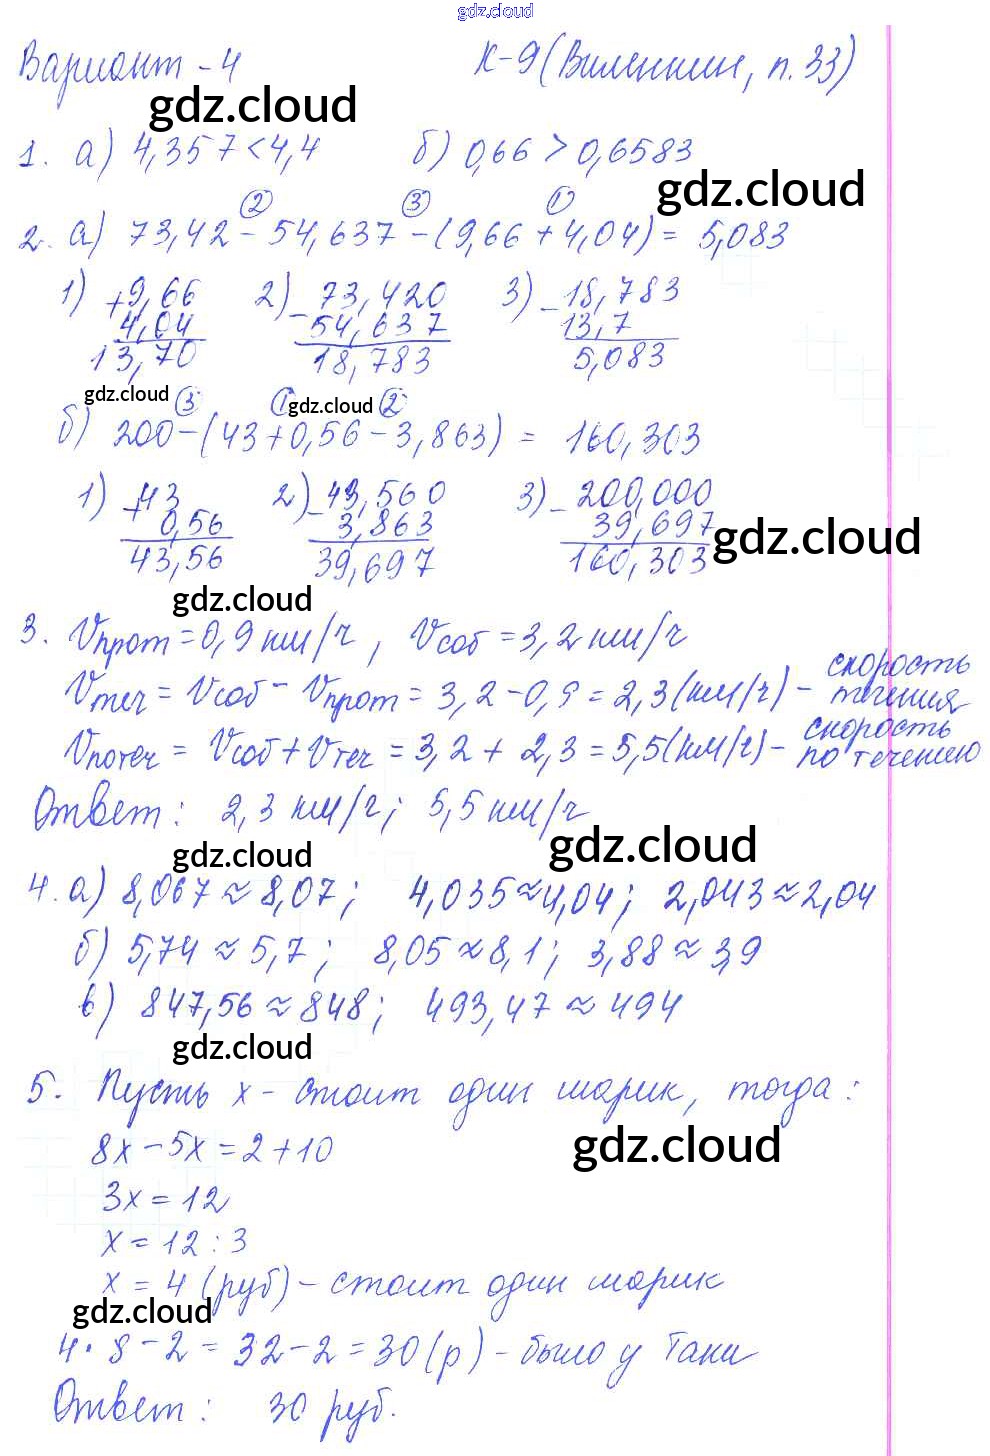 gdz.cloud
Вариант - 4 К-9 (Виленкин, п. 33)
gdz.cloud
1. а) 4,357 < 4,4 б) 0,66 > 0,6583
gdz.cloud
② ③ ①
2. а) 73,42 - 54,637 - (9,66 + 4,04) = 5,083
1) + 9,66 2) - 73,420 3) - 18,783
4,04 54,637 13,7
13,70 18,783 5,083
gdz.cloud ③ ① gdz.cloud ②
б) 200 - (43 + 0,56 - 3,863) = 160,303
1) + 43 2) - 43,560 3) - 200,000
0,56 3,863 39,697
gdz.cloud
43,56 39,697 160,303
gdz.cloud
3. Vпрот = 0,9 км/ч, Vсоб = 3,2 км/ч
Vтеч = Vсоб - Vпрот = 3,2 - 0,9 = 2,3 (км/ч) - скорость течения
Vпотеч = Vсоб + Vтеч = 3,2 + 2,3 = 5,5 (км/ч) - скорость по течению
Ответ: 2,3 км/ч; 5,5 км/ч
gdz.cloud gdz.cloud
4. а) 8,067 ≈ 8,07; 4,035 ≈ 4,04; 2,043 ≈ 2,04
б) 5,74 ≈ 5,7; 8,05 ≈ 8,1; 3,88 ≈ 3,9
в) 847,56 ≈ 848; 493,47 ≈ 494
gdz.cloud
5. Пусть х - стоит один шарик, тогда:
8х - 5х = 2 + 10
gdz.cloud
3х = 12
х = 12 : 3
х = 4 (руб) - стоит один шарик
gdz.cloud
4 · 8 - 2 = 32 - 2 = 30 (р) - было у Тани
Ответ: 30 руб.